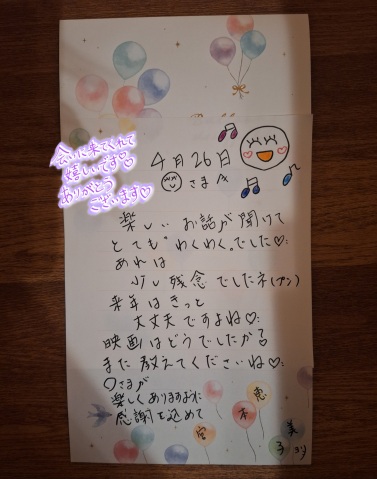 会いに来てくれて
嬉しいです♡
ありがとう
ございます♡
4月26日
さまへ
楽しいお話が聞けて
とても"わくわく"でした♡
あれは
少し残念でしたネ(プン)
来年はきっと
大丈夫ですよね♡
映画はどうでしたか?
また教えてくださいね♡
○さまが
楽しくありますように
感謝を込めて
恵
美
より